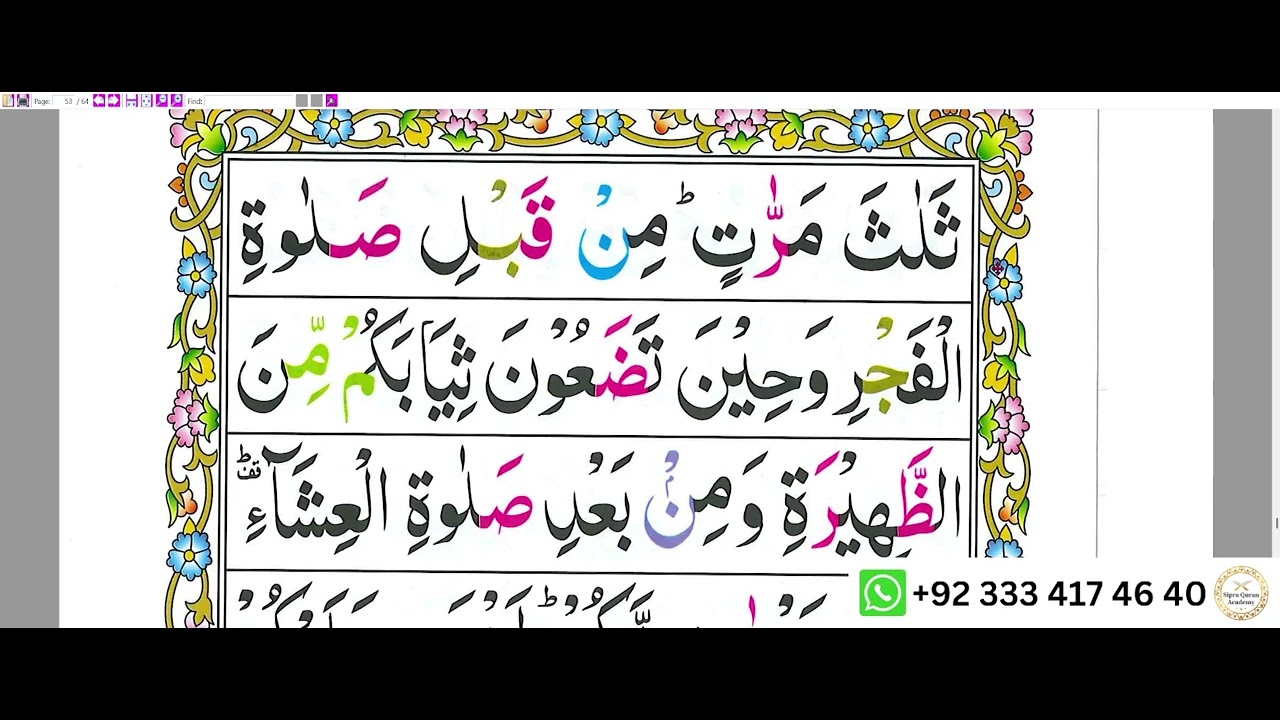 Page: 53 / 64 Find:
ثَلٰثَ مَرّٰتٍؕ مِنْ قَبْلِ صَلٰوةِ
الْفَجْرِ وَحِيْنَ تَضَعُوْنَ ثِيَابَكُمْ مِّنَ
الظَّهِيْرَةِ وَمِنْۢ بَعْدِ صَلٰوةِ الْعِشَآءِ ۛؕ قف
+92 333 417 46 40
Sipra Quran
Academy